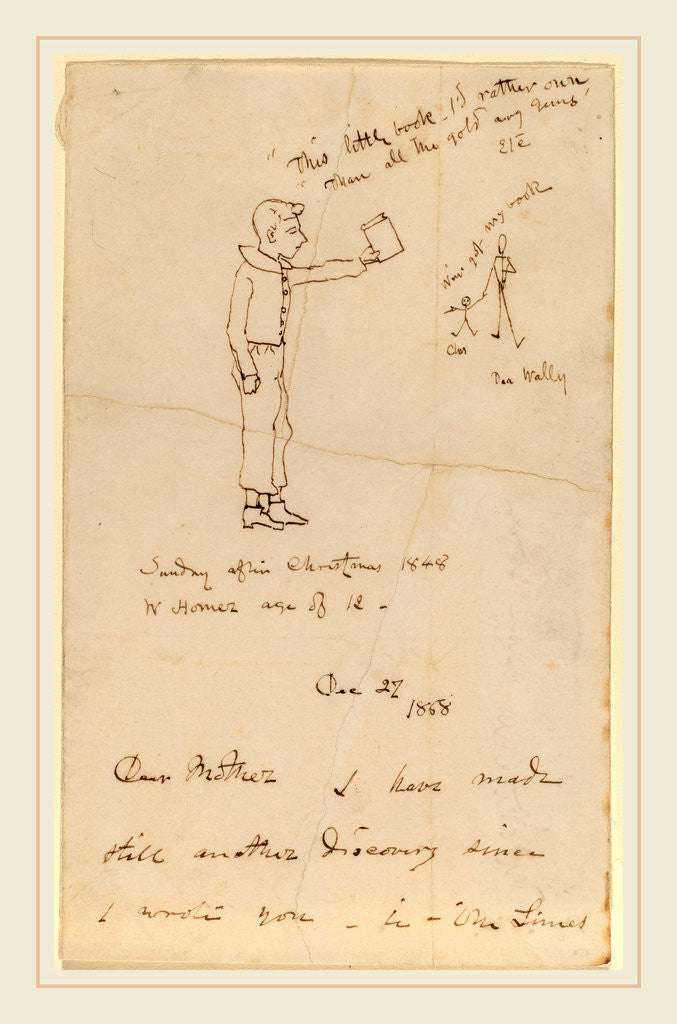 "This little book - I'd rather own
"Than all the gold any gems"
etc
Now got my book
Chas
Dea Wally
Sunday after Christmas 1848
W Homer age of 12 -
Dec 27
1868
Dear Mother I have made
still another discovery since
I wrote you - ie - The Times